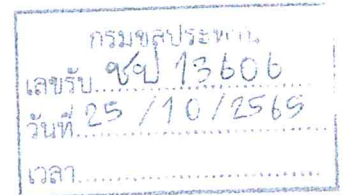 กรมชลประทาน
เลขรับ ชป 13606
วันที่ 25 / 10 / 2565
เวลา